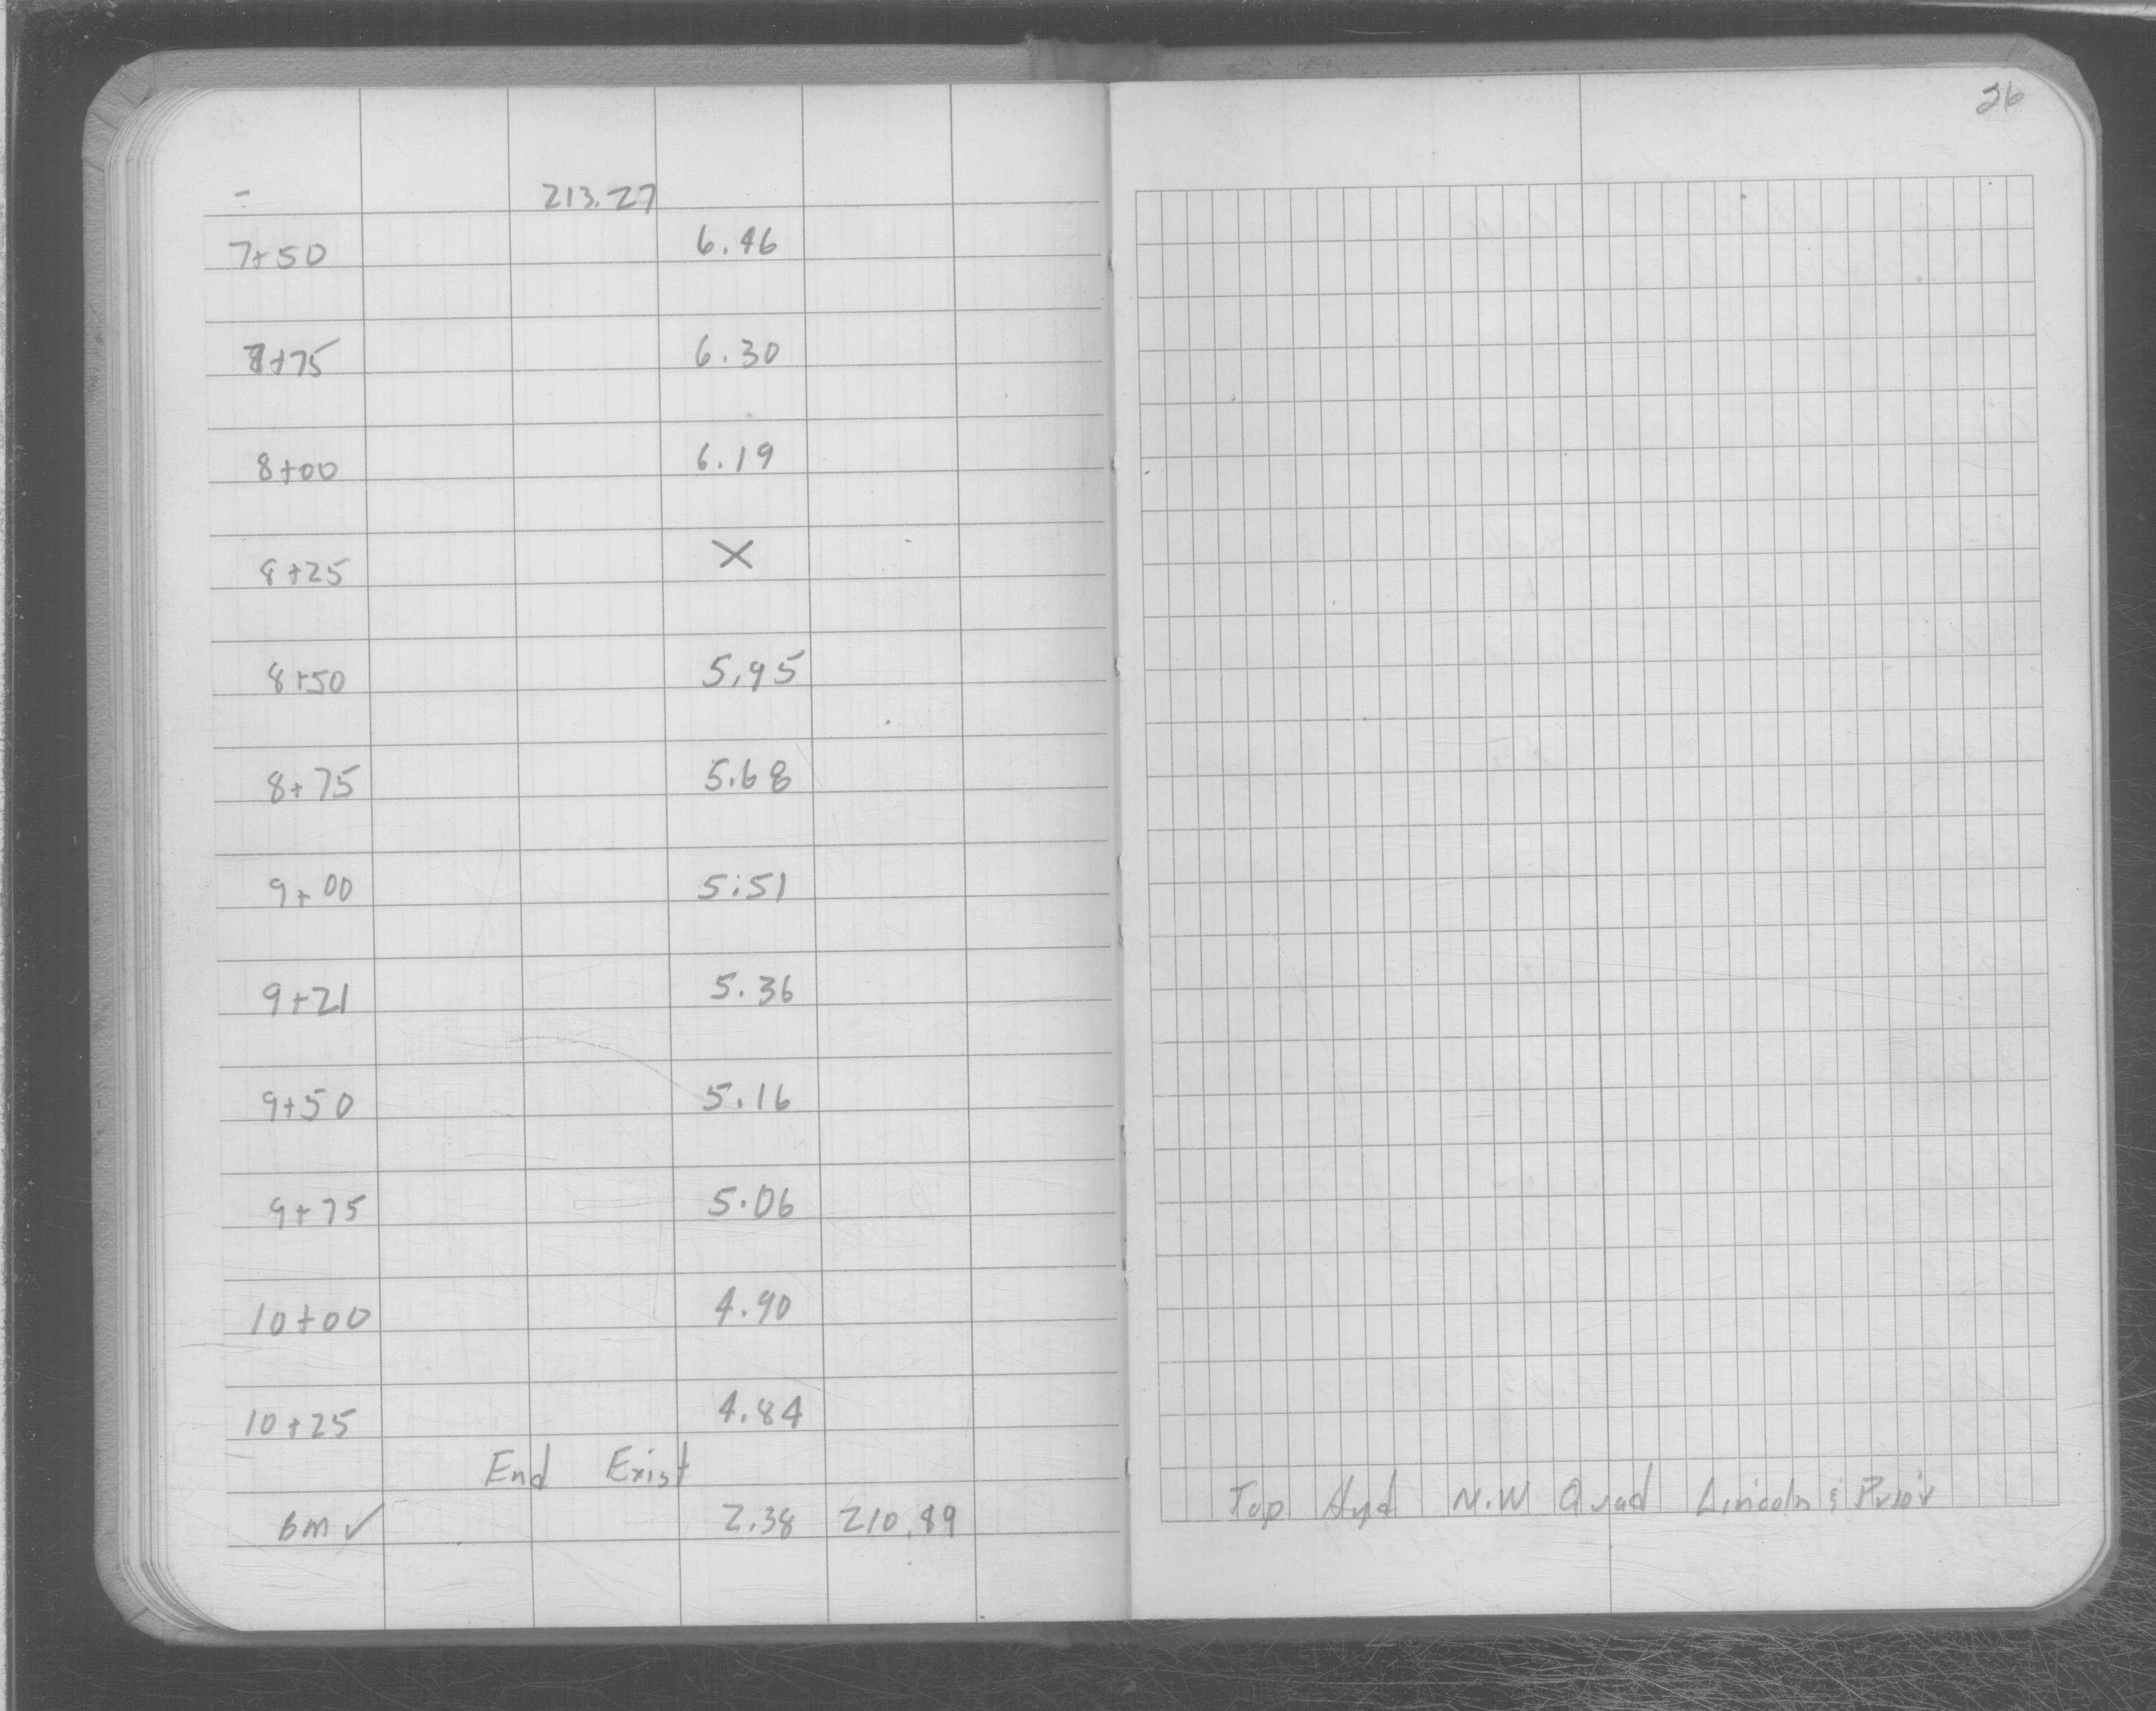 26
- 213.27
7+50 6.46
7+75 6.30
8+00 6.19
8+25 X
8+50 5.95
8+75 5.68
9+00 5.51
9+21 5.36
9+50 5.16
9+75 5.06
10+00 4.90
10+25 4.84
End Exist
BM ✓ 2.38 210.89 Top Hyd N.W Quad Lincoln & Prior